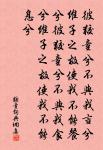 彼狡童兮不與我言兮
維子之故使我不能餐
兮彼狡童兮不與我食
兮維子之故使我不能
息兮